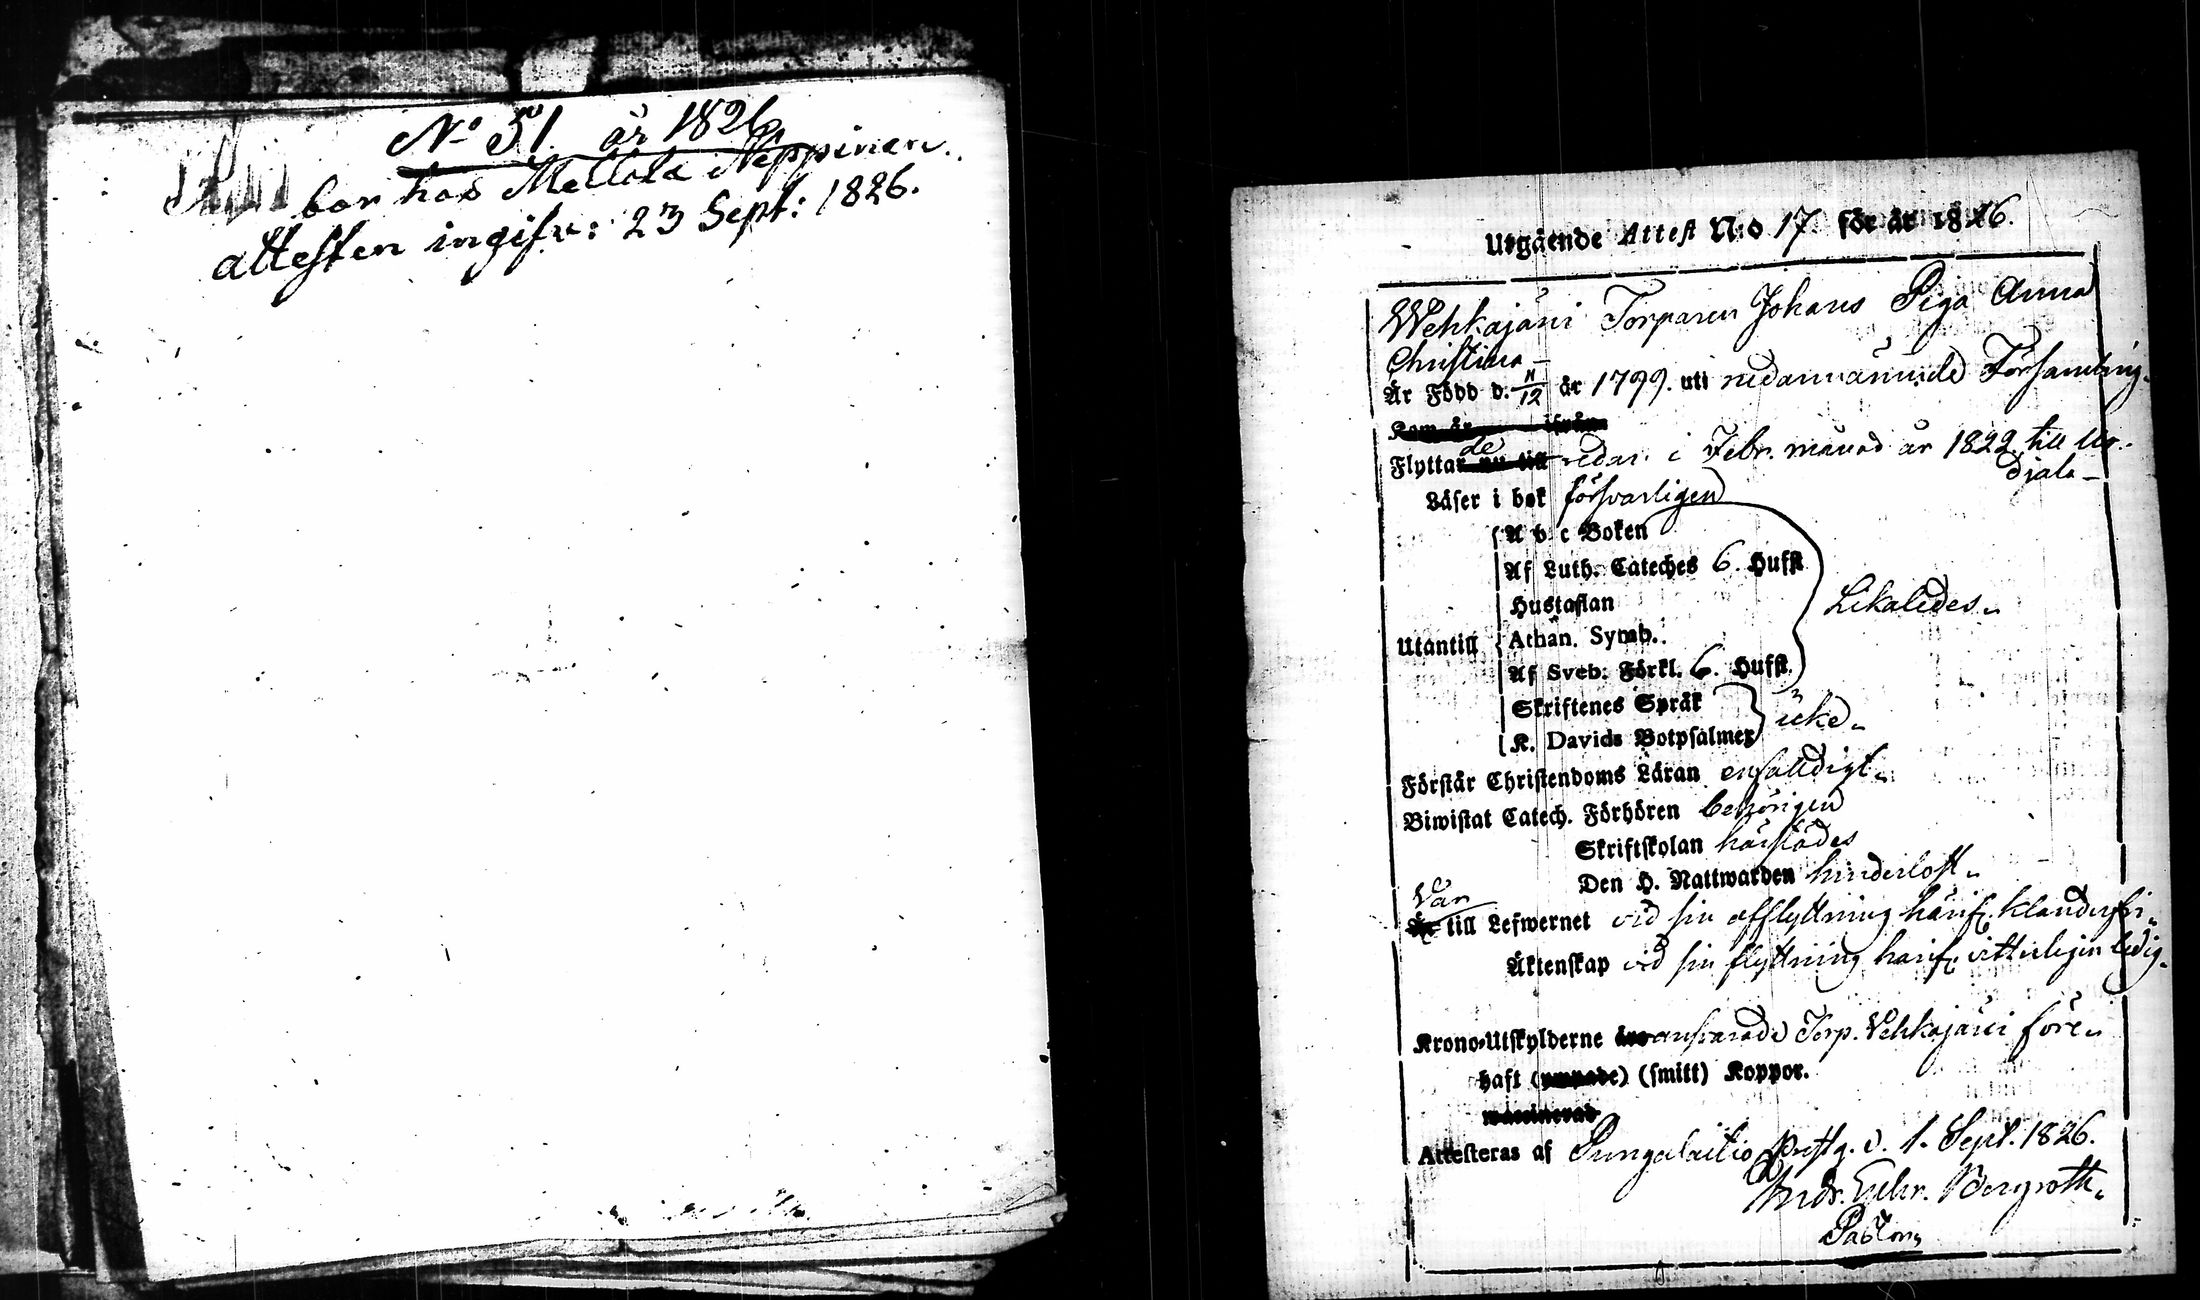 No 51. år 1826
bor hos Mellola Neppinen.
attesten ingifv: 23 Sept: 1826.
Utgående Attest N:o 17. för år 1826.
Wehkajärvi Torparen Johans Piga Anna
Christina
Är Född d. 11/12 år 1799. uti nedannämnde Församling.
Kom år ifrån
Flyttade nu till redan i Febr. månad år 1822 till Ur-
djala
Läser i bok försvarligen
A b c Boken
Af Luth. Cateches 6. Hufst.
Hustaflan
Likaledes
Utantill Athan. Symb.
Af Sveb. Förkl. 6. Hufst.
Skriftenes Språk
icke
K. Davids Botpsalmer
Förstår Christendoms Läran enfalldigt
Biwistat Catech. Förhören behörigen
Skriftskolan härstädes
Den H. Nattwarden hinderlöst
Var
Är till Lefwernet vid sin afflyttning härif. klanderfri
Äktenskap vid sin flyttning härif. vitterligen ledig.
Krono-Utskylderne ansvarade Torp. Vehkajärvi före
haft (ympade) (smitt) Koppor.
waccinerad
Attesteras af Pungalaitio Prestg. d. 1. Sept. 1826.
Andr. Bergroth
Pastor